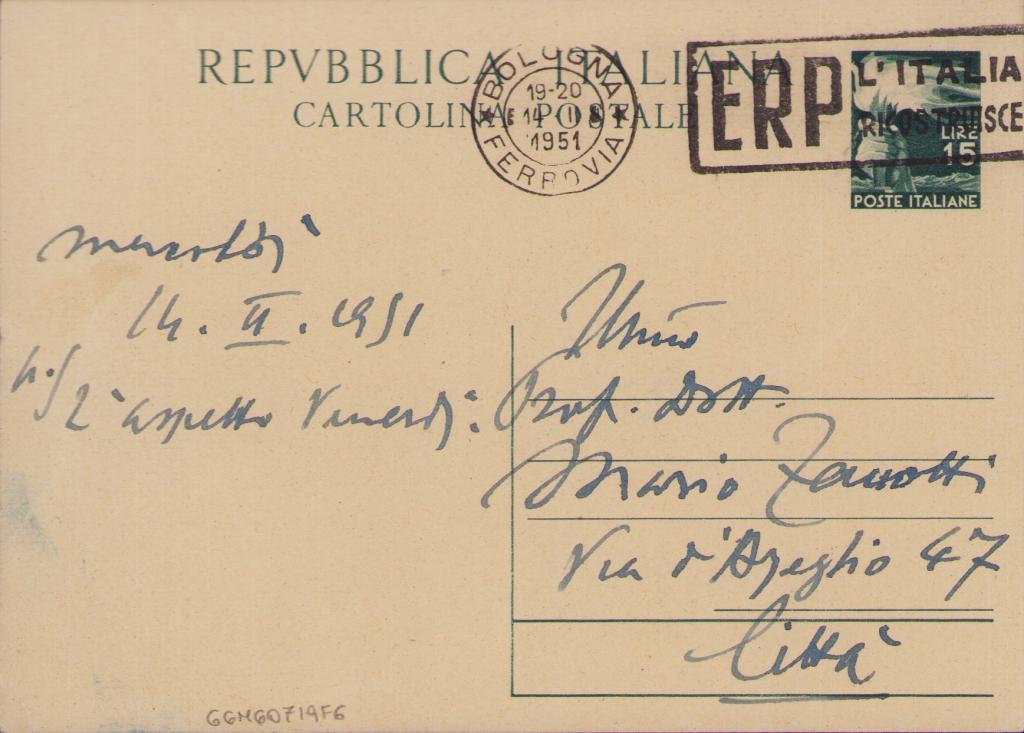 REPVBBLICA ITALIANA
CARTOLINA POSTALE
BOLOGNA
19-20
14·II
1951
FERROVIA
ERP L'ITALIA
RICOSTRUISCE
LIRE
15
POSTE ITALIANE
mercoldì
14. II. 1951
L'aspetto Venerdì.
Prof. Dott.
Mario Zanotti
Via d'Azeglio 47
Città
GGMGO719F6